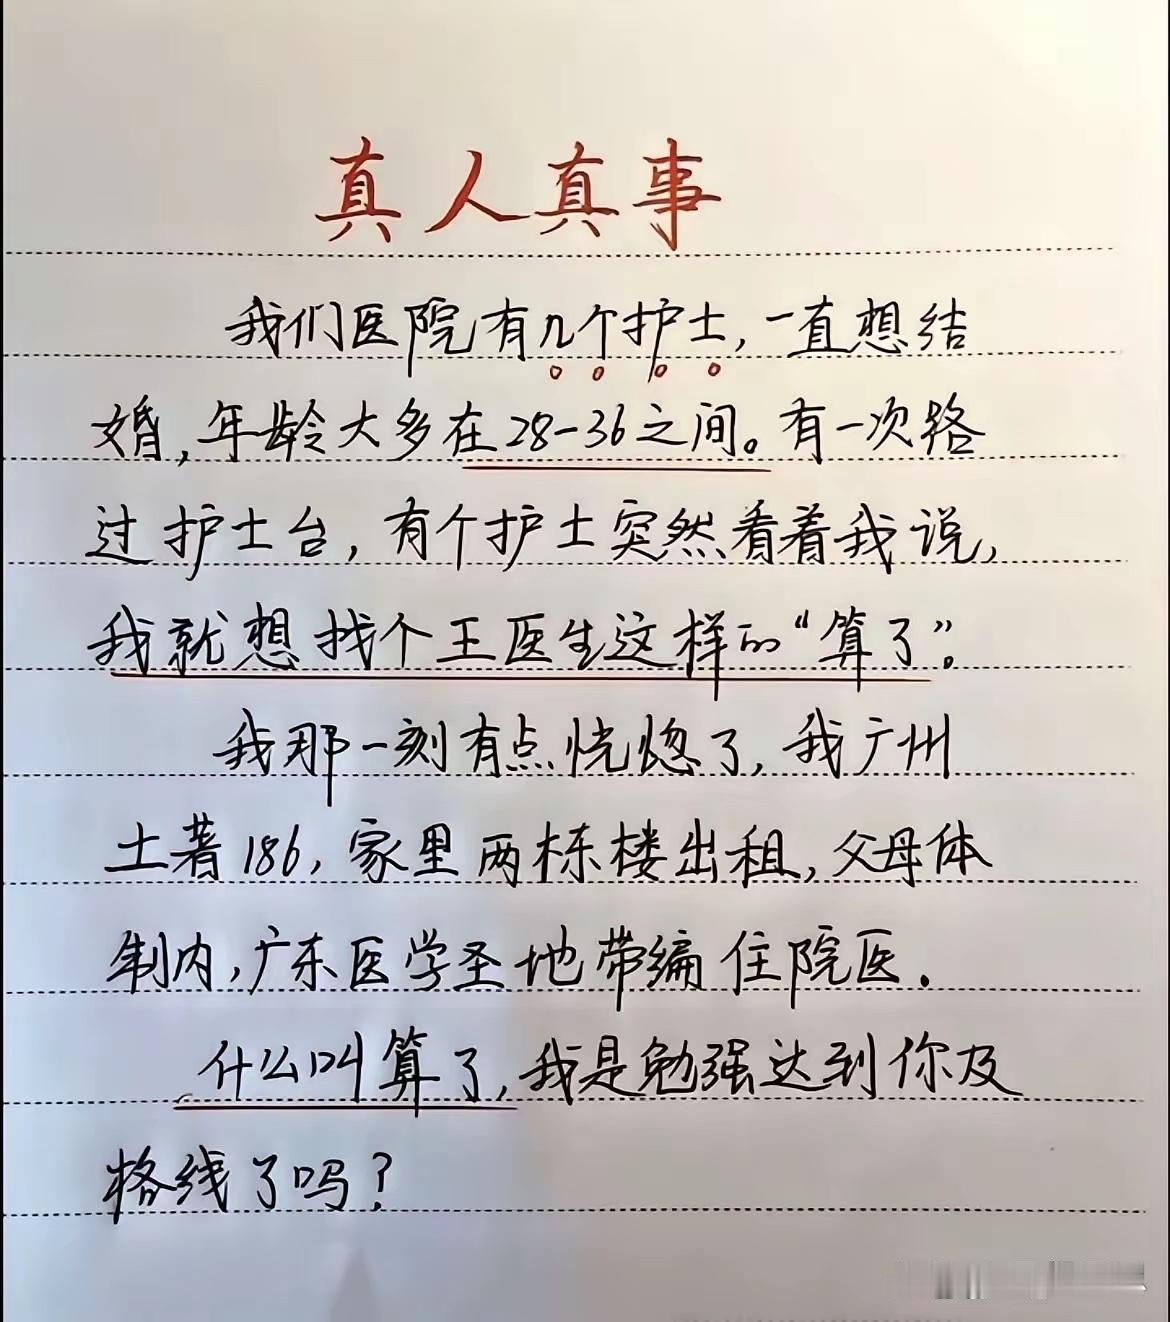 真人真事
我们医院有几个护士,一直想结
婚,年龄大多在28-36之间。有一次路
过护士台,有个护士突然看着我说,
我就想找个王医生这样的“算了”。
我那一刻有点恍惚了,我广州
土著186,家里两栋楼出租,父母体
制内,广东医学圣地带编住院医.
什么叫算了,我是勉强达到你及
格线了吗?